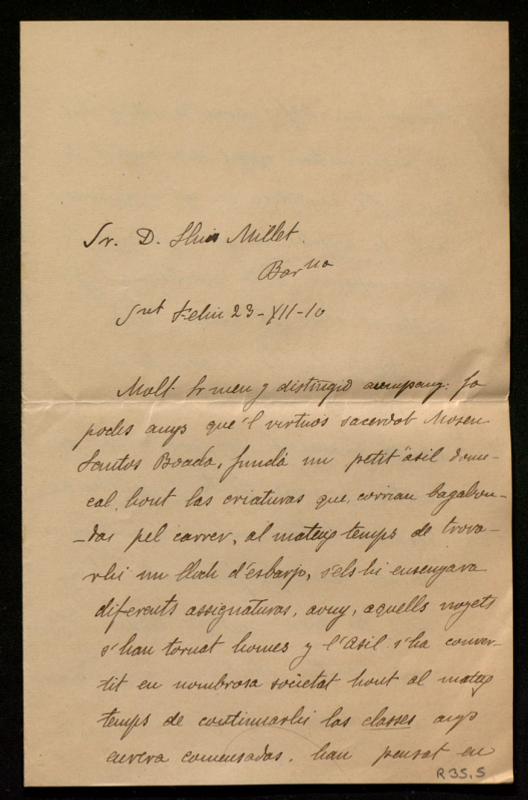 Sr. D. Lluis Millet.
Barna
Snt Feliu 23-XII-10
Molt Sr meu y distingid company: fa
pochs anys que 'l virtuós sacerdot Mosen
Santos Boada, fundá un petit asil domi-
cal, hont las criaturas que corrian bagabon-
-das pel carrer, al mateig temps de trova-
rhi un lloch d'esbarjo, s'els hi ensenyava
diferents assignaturas, avuy, aquells noyets
s'han tornat homes y l'Asil s'ha conver-
tit en nombrosa societat hont al mateig
temps de continuarhi las classes anys
enrera comensadas, han pensat en
R 35, 5